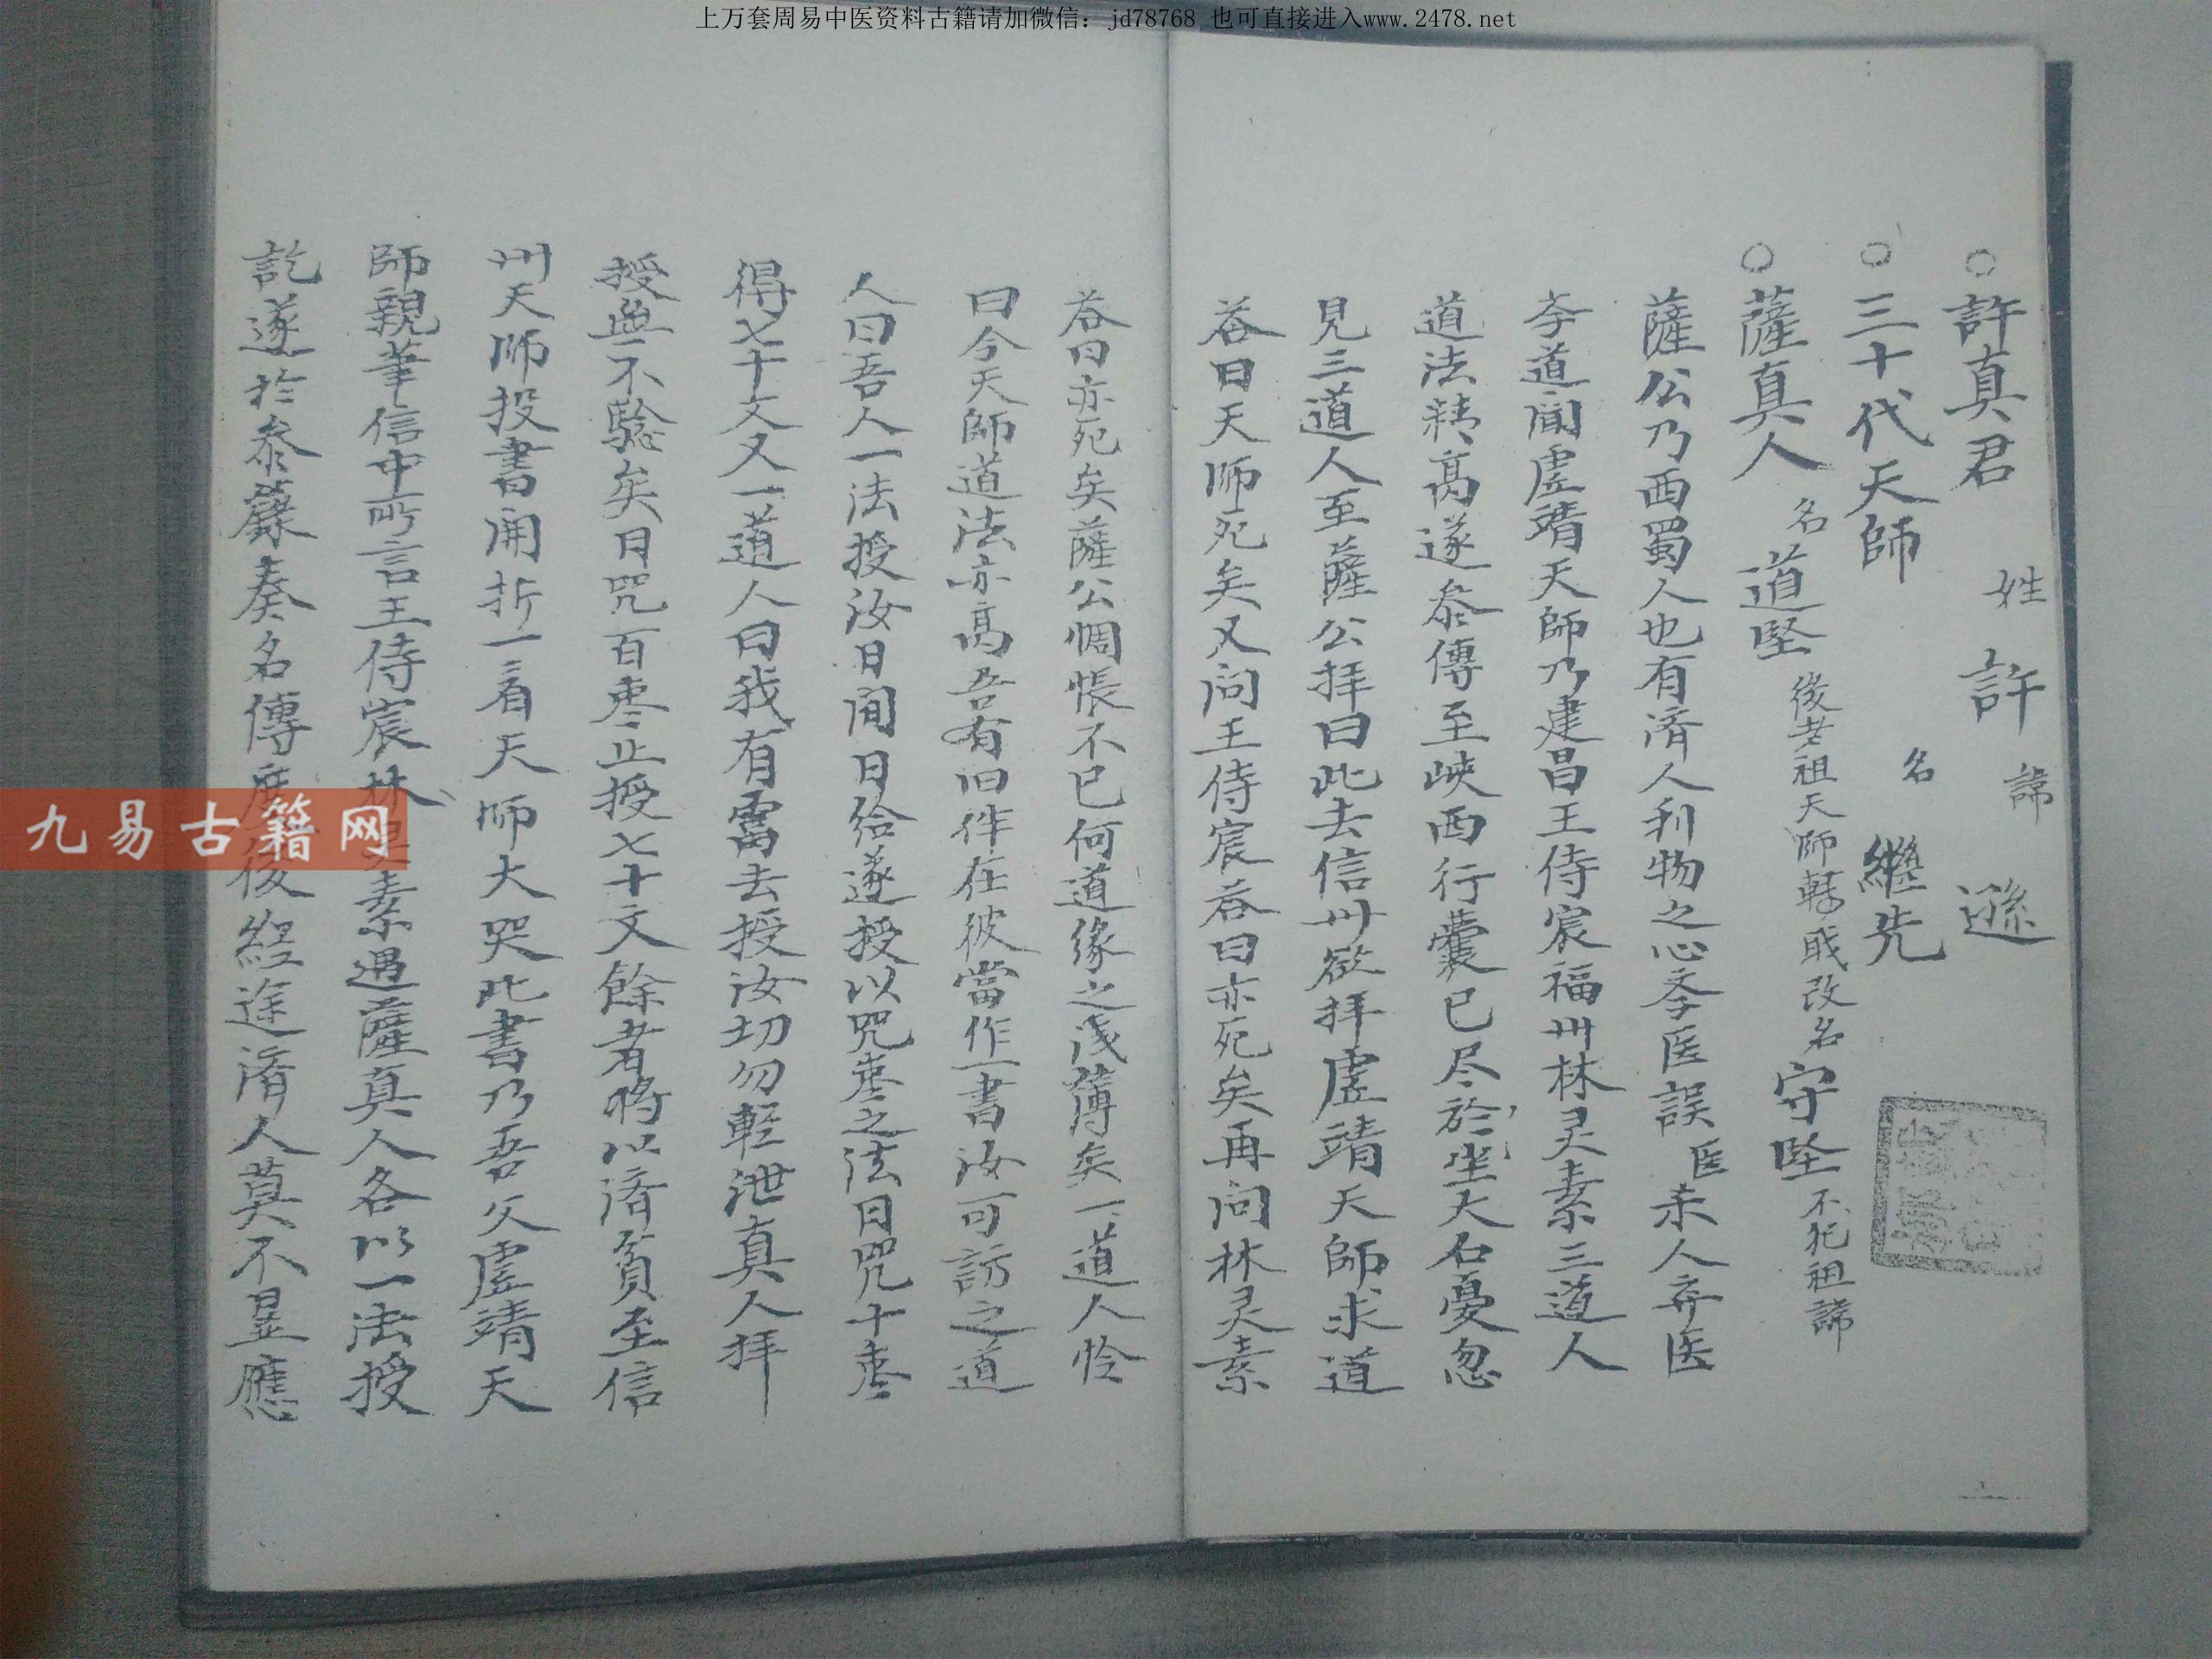 上万套周易中医资料古籍请加微信：jd78768 也可直接进入www.2478.net
○許真君 姓 許 諱 遜
○三十代天師 名 繼先
○薩真人 名 道堅 後老祖天師轉戝改名 守堅 不犯祖諱
薩公乃西蜀人也有濟人利物之心李医誤医未人弃医
李道聞虛靖天師乃建昌王侍宸福州林灵素三道人
道法精高遂叅傳至峽西行囊已尽於坐大石憂忽
見三道人至薩公拜曰此去信州欲拜虛靖天師求道
荅曰天师死矣又问王侍宸荅曰亦死矣再问林灵素
荅曰亦死矣薩公惆悵不已何道緣之浅薄矣一道人怜
曰今天師道法亦高吾有旧伴在彼當作一書汝可訪之道
人曰吾人一法授汝日间日给遂授以咒枣之法日咒十枣
得七十文又一道人曰我有雷去授汝切勿輕泄真人拜
授無不驗矣日咒百枣止授七十文餘者將以濟貧至信
州天师投書開折一看天师大哭此書乃吾父虛靖天
師親筆信中所言王侍宸林灵素遇薩真人各以一法授
訖遂於叅籙奏名傳度後經途濟人莫不显應
九易古籍网